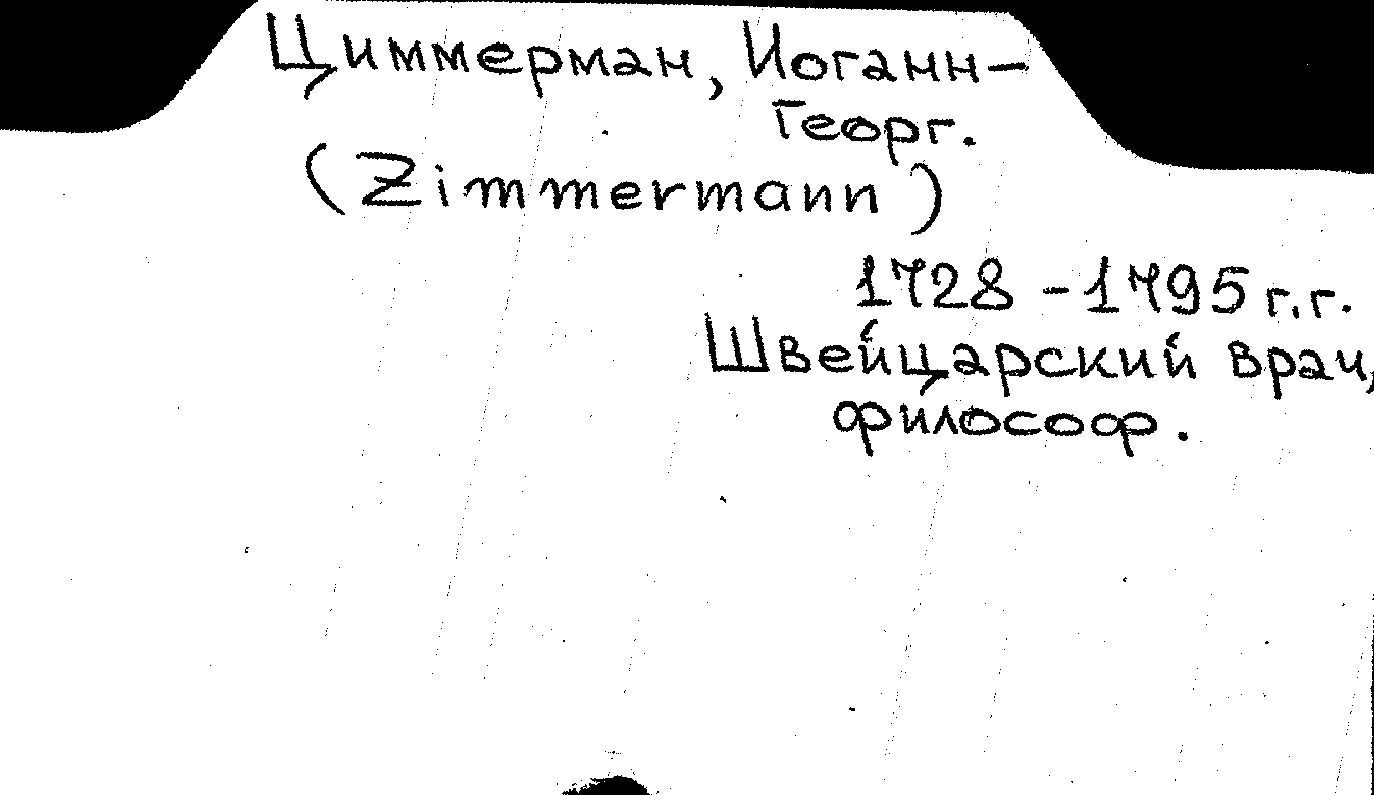 Циммерман, Иоганн-
Георг.
(Zimmermann)
1728 - 1795 г.г.
Швейцарский врач,
философ.